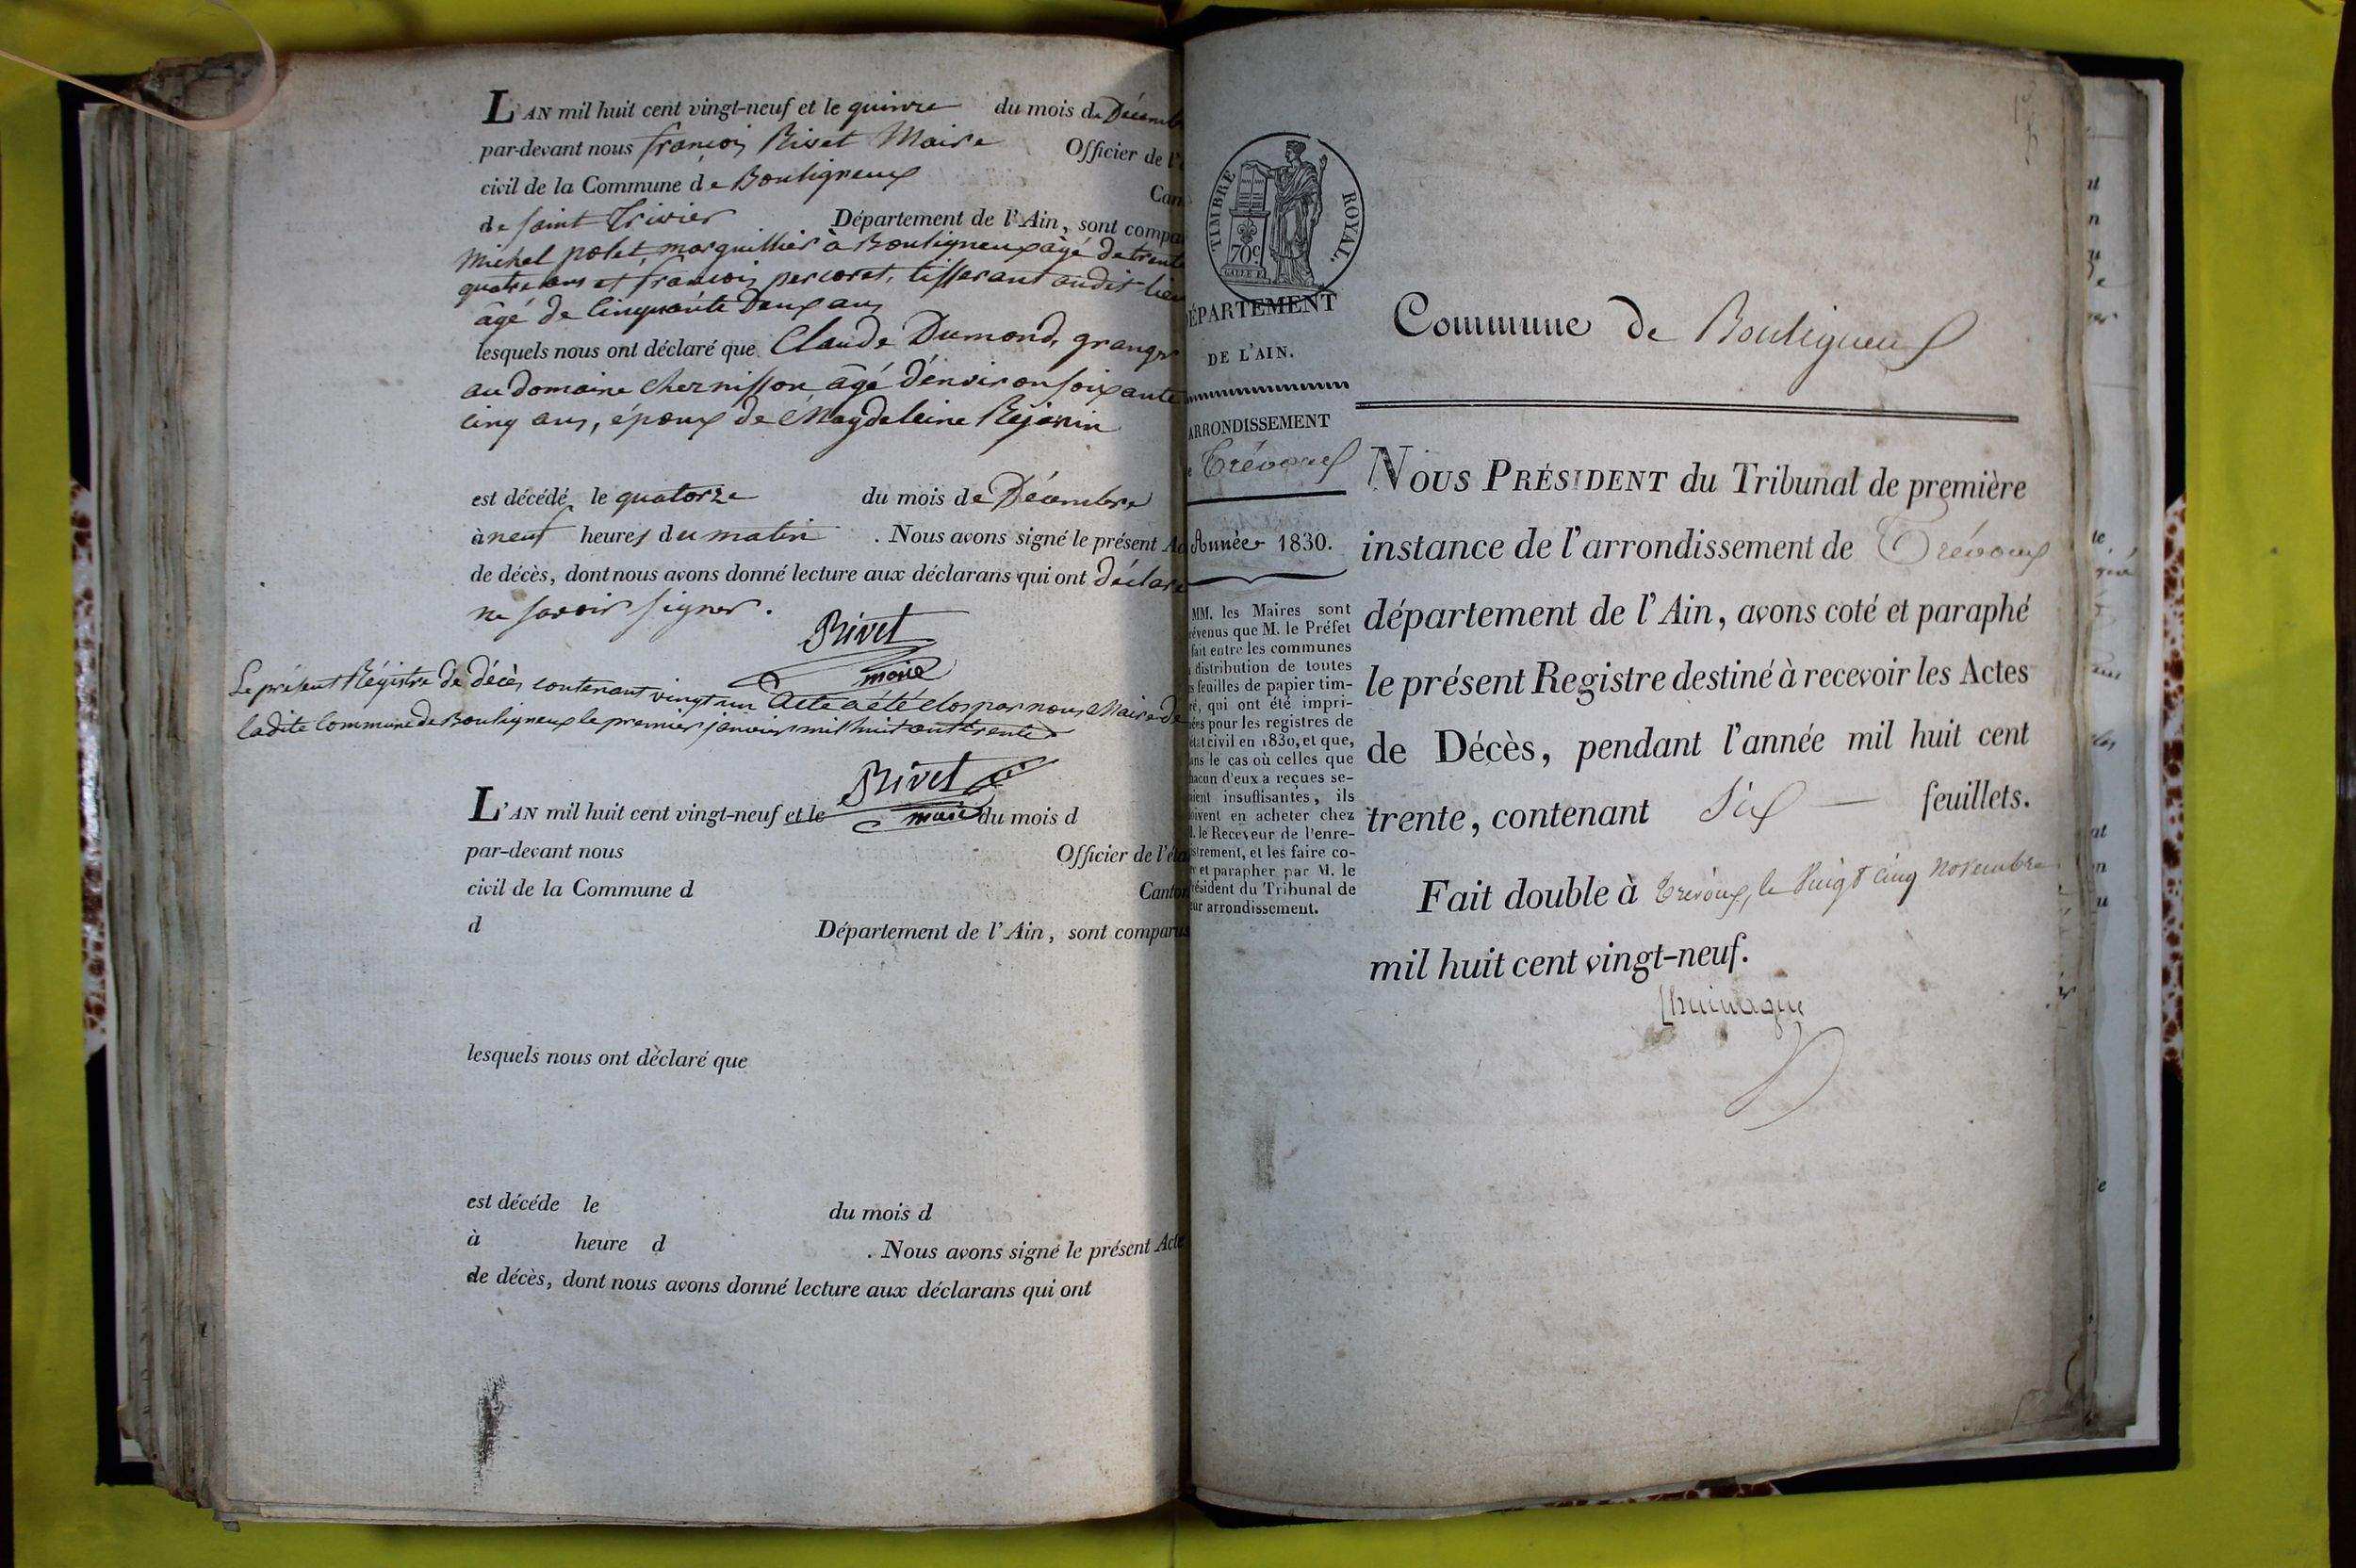 L'AN mil huit cent vingt-neuf et le quinze du mois de Décemb
par-devant nous françois Rivet Maire Officier de l'
civil de la Commune de Bouligneux Can
de Saint Trivier Département de l'Ain, sont compa
Michel polet, marguillier à Bouligneux âgé de trente
quatre ans et françois percoret, tisserant audit lieu
âgé de Cinquante Deux ans
lesquels nous ont déclaré que Claude Dumond, granger
au domaine Chernisson âgé d'environ soixante
cinq ans, époux de Magdeleine Réjanin
est décédé le quatorze du mois de Décembre
à neuf heures du matin . Nous avons signé le présent Ac
de décès, dont nous avons donné lecture aux déclarans qui ont déclaré
ne savoir signer.
Rivet
maire
Le présent Régistre de décès contenant vingt un Acte a été clos par nous Maire de
ladite Commune de Bouligneux le premier janvier mil huit cent trente
Rivet
maire
L'AN mil huit cent vingt-neuf et le du mois d
par-devant nous Officier de l'éta
civil de la Commune d Canton
d Département de l'Ain, sont comparus
lesquels nous ont déclaré que
est décéde le du mois d
à heure d . Nous avons signé le présent Acte
de décès, dont nous avons donné lecture aux déclarans qui ont
TIMBRE ROYAL.
70c
DÉPARTEMENT
DE L'AIN.
ARRONDISSEMENT
e Trévoux
Année 1830.
MM. les Maires sont
révenus que M. le Préfet
fait entre les communes
a distribution de toutes
s feuilles de papier tim-
ré, qui ont été impri-
mées pour les registres de
état civil en 1830, et que,
ans le cas où celles que
hacun d'eux a reçues se-
aient insuffisantes, ils
oivent en acheter chez
M. le Receveur de l'enre-
istrement, et les faire co-
r et parapher par M. le
résident du Tribunal de
eur arrondissement.
Commune de Bouligneux
NOUS PRÉSIDENT du Tribunal de première
instance de l'arrondissement de Trévoux
département de l'Ain, avons coté et paraphé
le présent Registre destiné à recevoir les Actes
de Décès, pendant l'année mil huit cent
trente, contenant Six — feuillets.
Fait double à Trévoux, le Vingt cinq Novembre
mil huit cent vingt-neuf.